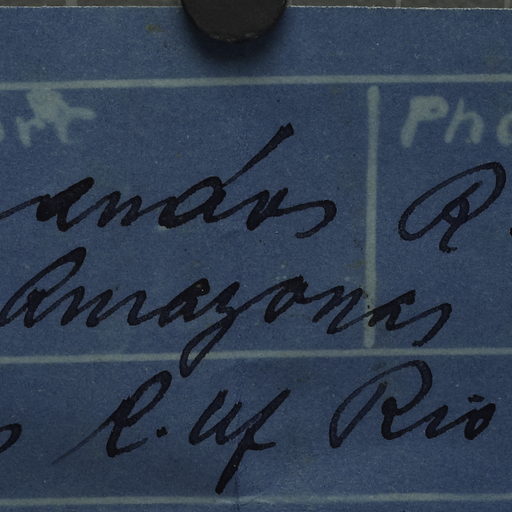 ort Pho
andos R.
Amazonas
R. Uf Rio